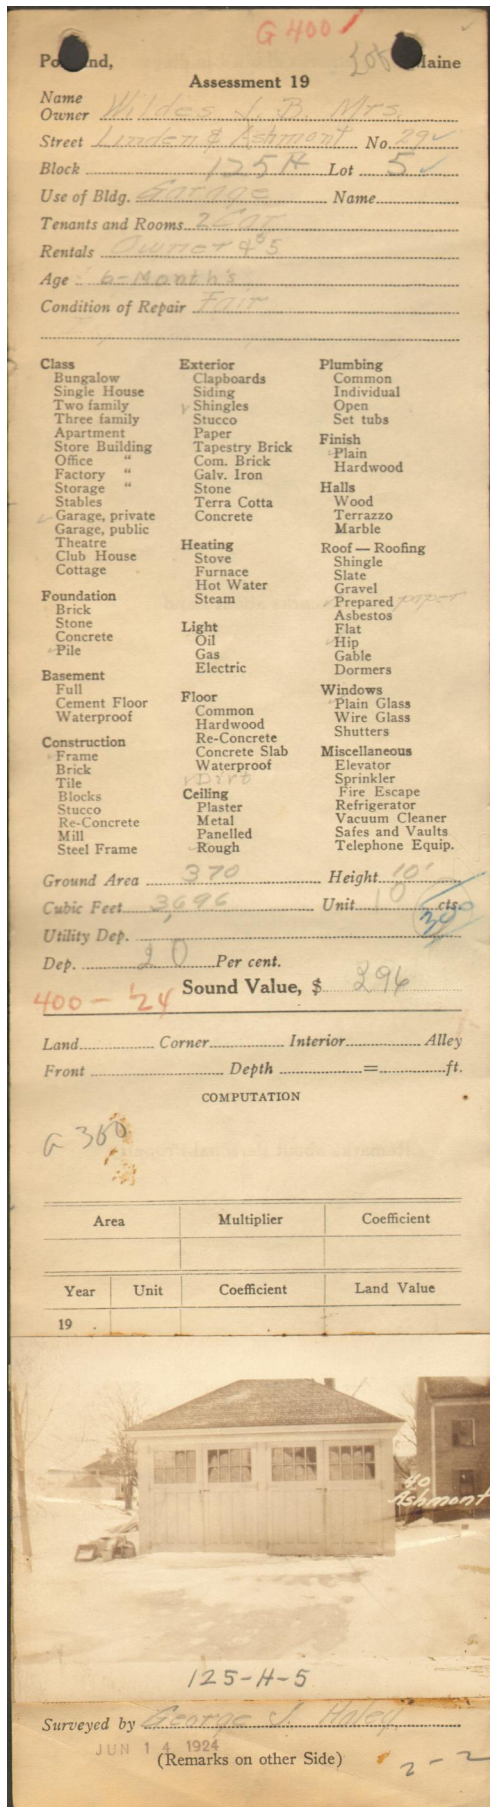 G 400
Lot
Po nd, Maine
Assessment 19
Name
Owner Wildes J. B. Mrs.
Street Linden & Ashmont No. 29
Block 125 H Lot 5
Use of Bldg. Garage Name
Tenants and Rooms 2 Car
Rentals Owner 4 5
Age 6-Months
Condition of Repair Fair
Class
Bungalow
Single House
Two family
Three family
Apartment
Store Building
Office "
Factory "
Storage "
Stables
Garage, private
Garage, public
Theatre
Club House
Cottage
Foundation
Brick
Stone
Concrete
Pile
Basement
Full
Cement Floor
Waterproof
Construction
Frame
Brick
Tile
Blocks
Stucco
Re-Concrete
Mill
Steel Frame
Exterior
Clapboards
Siding
Shingles
Stucco
Paper
Tapestry Brick
Com. Brick
Galv. Iron
Stone
Terra Cotta
Concrete
Heating
Stove
Furnace
Hot Water
Steam
Light
Oil
Gas
Electric
Floor
Common
Hardwood
Re-Concrete
Concrete Slab
Waterproof
Dirt
Ceiling
Plaster
Metal
Panelled
Rough
Plumbing
Common
Individual
Open
Set tubs
Finish
Plain
Hardwood
Halls
Wood
Terrazzo
Marble
Roof — Roofing
Shingle
Slate
Gravel
Prepared paper
Asbestos
Flat
Hip
Gable
Dormers
Windows
Plain Glass
Wire Glass
Shutters
Miscellaneous
Elevator
Sprinkler
Fire Escape
Refrigerator
Vacuum Cleaner
Safes and Vaults
Telephone Equip.
Ground Area 370 Height 10'
Cubic Feet 3,696 Unit 10 cts.
Utility Dep.
Dep. 20 Per cent.
400 - '24 Sound Value, $ 296
Land Corner Interior Alley
Front Depth = ft.
COMPUTATION
G 300
Area Multiplier Coefficient
Year Unit Coefficient Land Value
19
40
Ashmont
125-H-5
Surveyed by George J. Haley
JUN 14 1924
(Remarks on other Side)
2-2